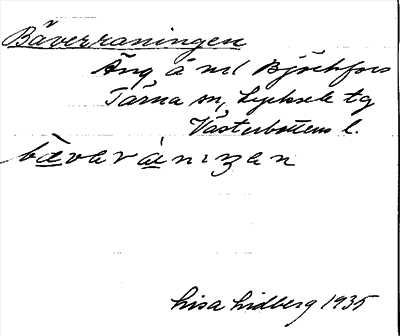 Bäverraningen
Äng å nel Björkfors
Tärna sn, Lycksele tg
Västerbottens l.
bævarànızan
Lisa Lidberg 1935